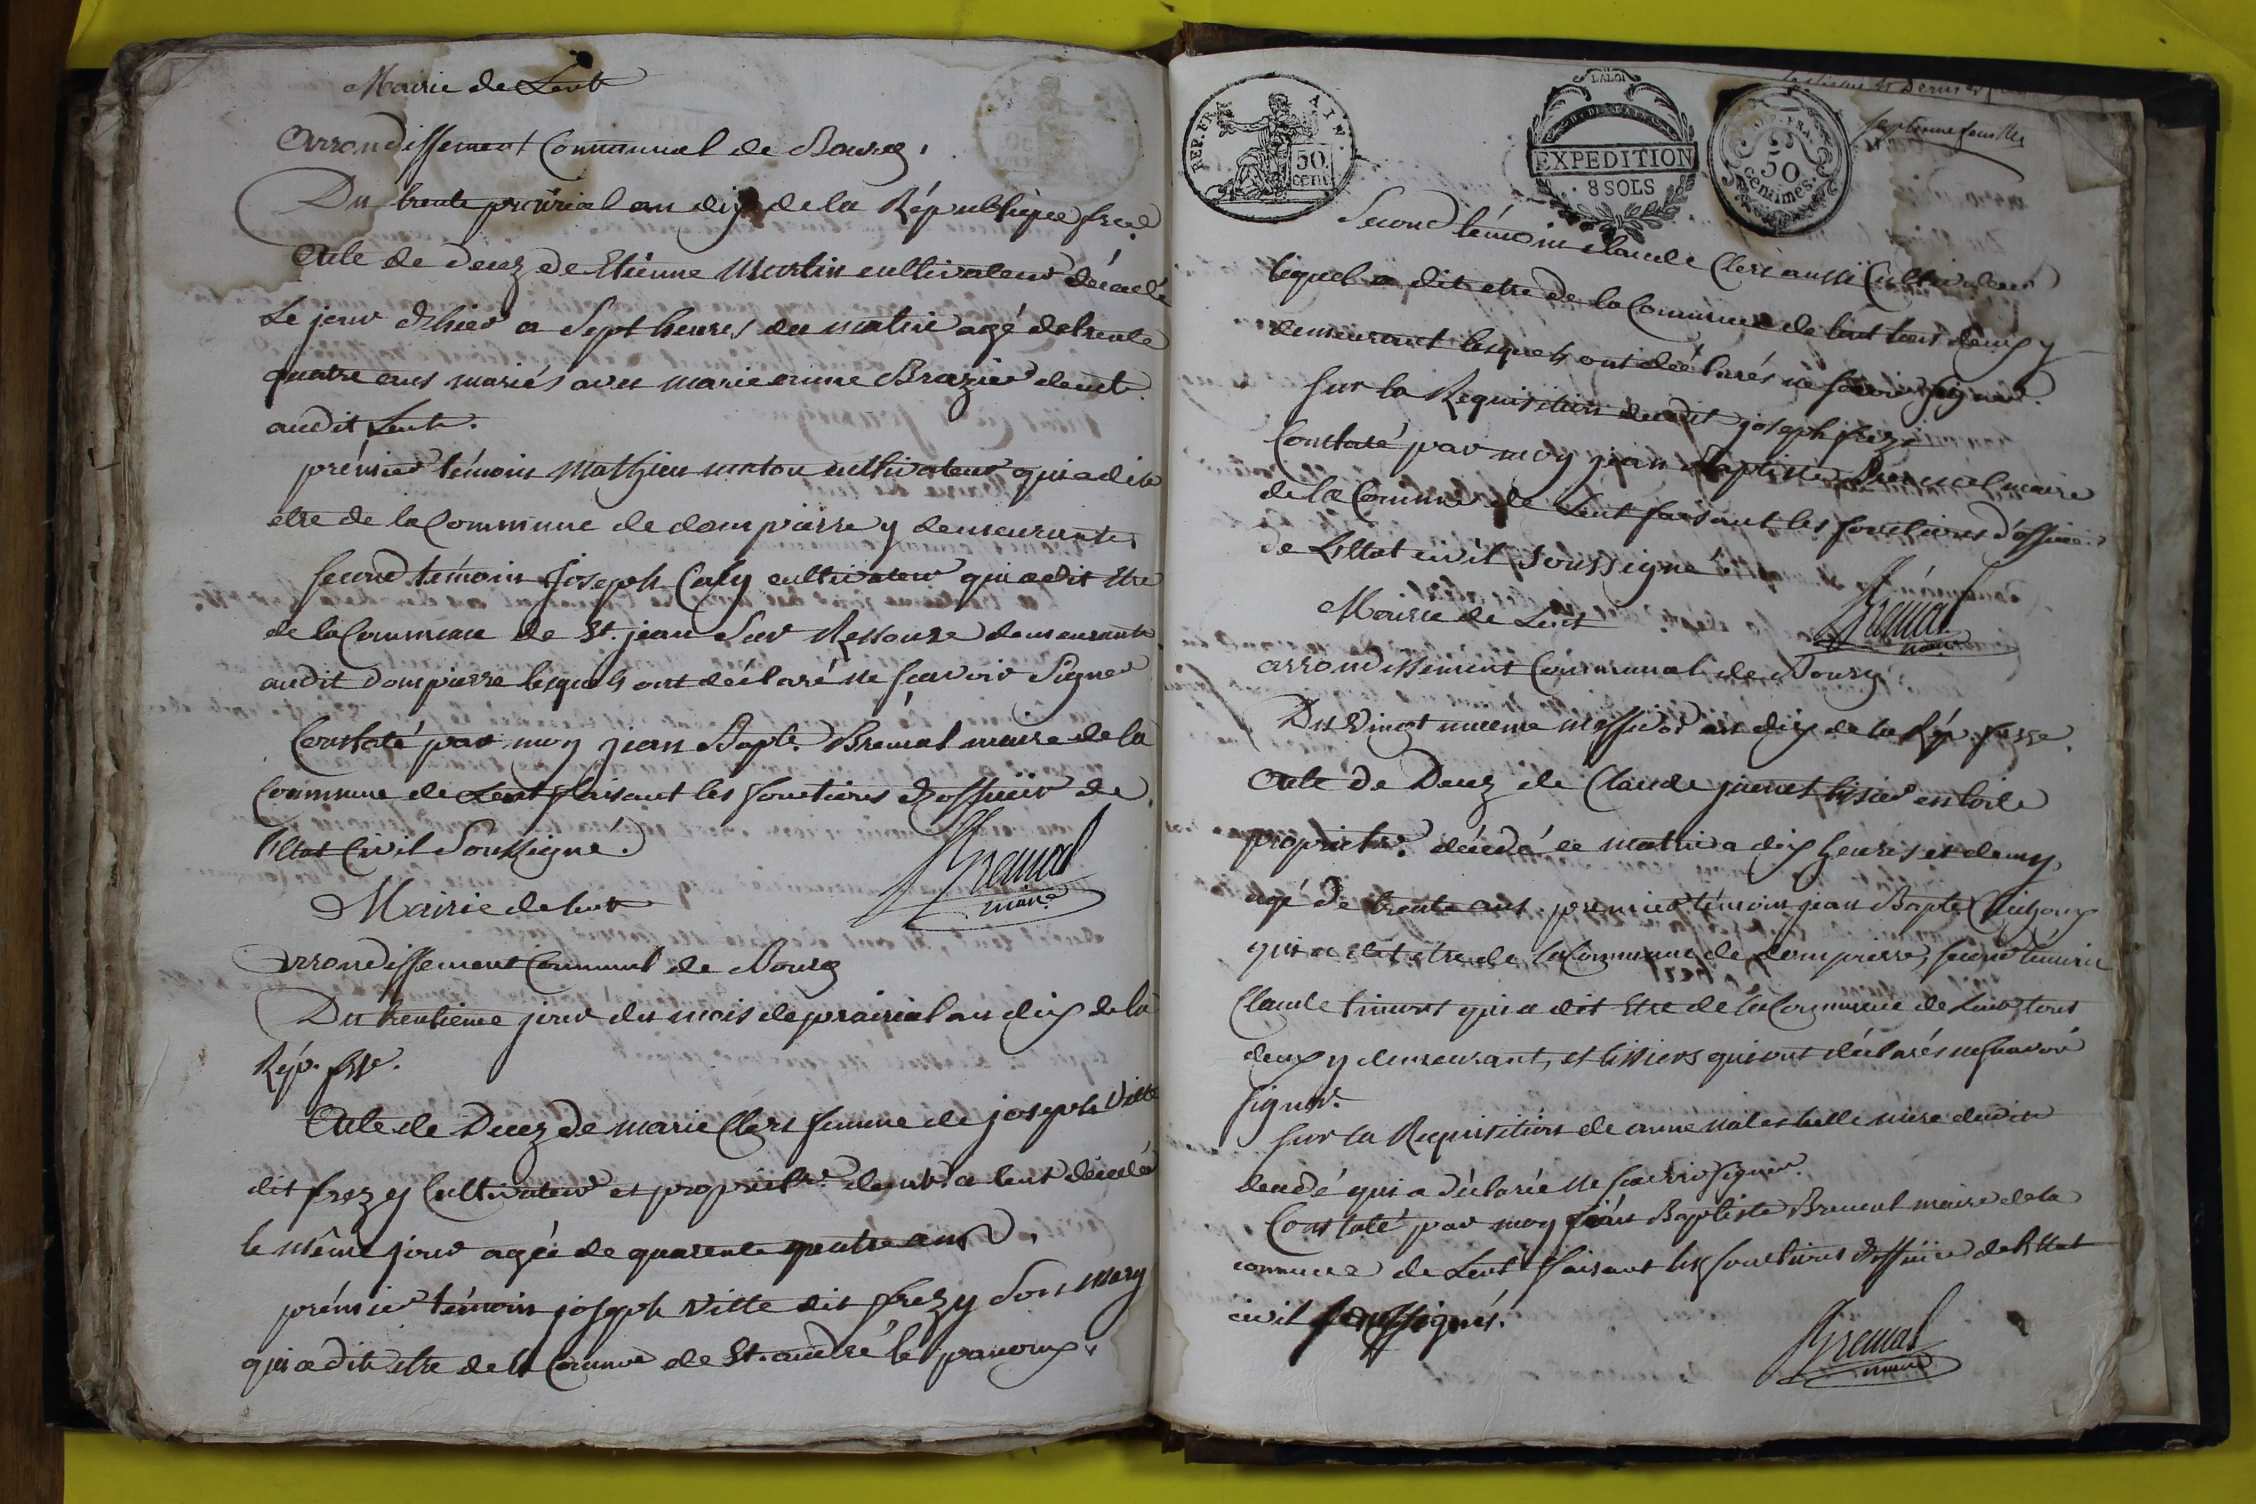 Mairie de Lent
Arrondissement Communal de Bourg.
Du trente prairial an dix de la République fse.
Acte de decez de Etienne Martin cultivateur décédé
Le jour d'hier a Sept heures du matin agé de trente
quatre ans mariés avec marie anne Brazier demt.
audit Lent.
prémier témoin Mathieu maton cultivateur qui a dit
etre de la Commune de dompierre y demeurante,
second témoin joseph Caly cultivateur qui a dit Etre
de la Commune de St. jean Sur Ressouze demeurante
audit Dompierre lesquels ont déclaré ne scavoir Signer
Constaté par moy jean Bapte. Bremal maire de la
Commune de Lent faisant les fonctions d'officier de
l'Etat Civil Soussigné.
Bremal
maire
Mairie de Lent
Arrondissement Communal de Bourg
Du trentieme jour du mois de prairial an dix de la
Rép. fse.
Acte de Decez de marie Clerc femme de joseph Vitte
dit frezy Cultivateur et propriétre. demt. a lent décédé
le même jour agée de quarente quatre ans.
prémier témoin joseph Vitte dit frezy Son mary
qui a dit etre de la Comune de St. andré le panoux,
REP. FRA.
50. cent.
LA LOI
EXPEDITION
8 SOLS
50
centimes.
Second témoin Claude Clerc aussi Cultivateur
lequel a dit etre de la Commune de lent tous deux y
demeurant lesquels ont déclarés ne scavoir signer.
Sur la Requisition dudit joseph frezy
Constaté par moy jean Baptiste Bremal maire
de la Commune de Lent faisant les fonctions d'officier
de L'Etat civil Soussigné.
Bremal
maire
Mairie de Lent
arrondissement Communal de Bourg
Du Vingt messidor an dix de la Rép. fse.
Acte de Decez de Claude tissier en toile
propriétre. décédé ce matin a dix heures et demy,
agé de trente ans premier témoin jean Bapte.
qui a dit etre de la Commune de dompierre, second témoin
Claude qui a dit Etre de la Commune de Lent tous
deux y demeurant, et tissiers qui ont déclarés ne scavoir
signer.
Sur la Requisition de anne belle mére dudit
decedé qui a déclarée ne scavoir signer.
Constaté par moy jean Baptiste Bremal maire de la
commune de Lent faisant les fonctions d'officier de l'Etat
civil soussigné.
Bremal
maire